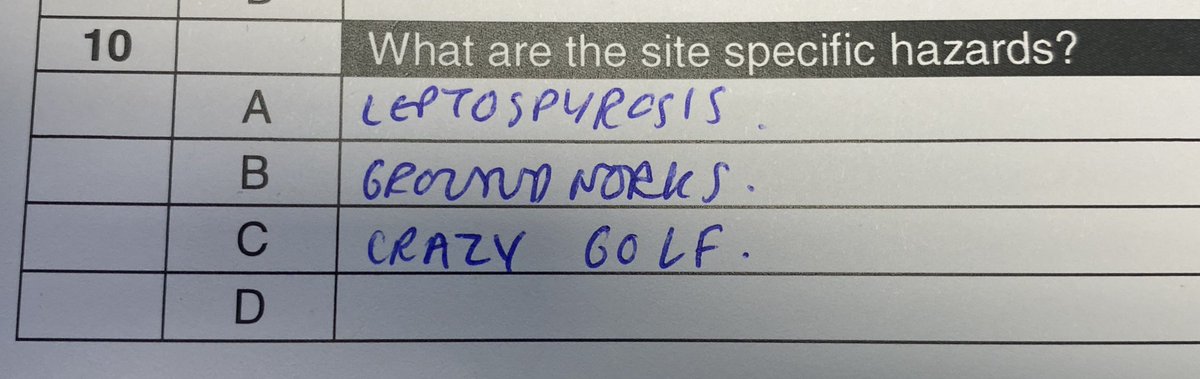 10 What are the site specific hazards?
A LEPTOSPYROSIS.
B GROUND WORKS.
C CRAZY GOLF.
D